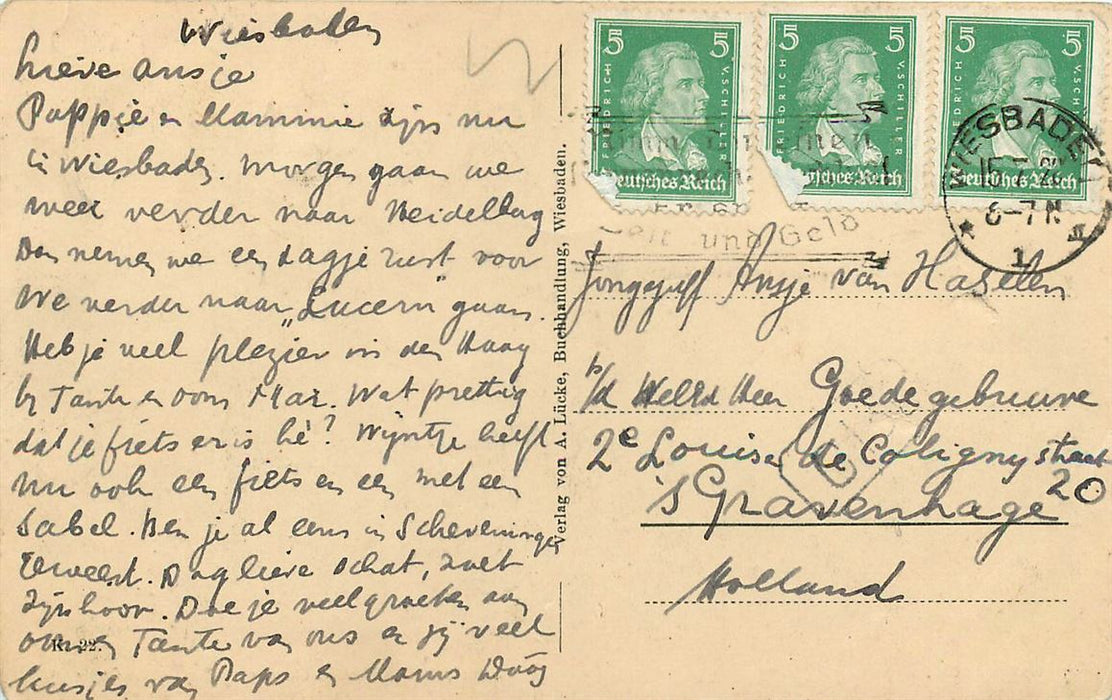 Wiesbaden
Lieve Ansje
Pappie en Mammie zijn nu
in Wiesbaden. Morgen gaan we
weer verder naar Heidelberg
Dan nemen we een dagje rust voor
we verder naar "Lucern" gaan.
Heb je veel plezier in den Haag
bij Tante en oom Max. Wat prettig
dat je fiets er is hè? Wijntje heeft
nu ook een fiets en een met een
Sabel. Ben je al eens in Scheveningen
geweest. Dag lieve schat, zoet
zijn hoor. Doe je veel groeten aan
oom en Tante van ons en jij veel
kusjes van Paps en Mams Dáág
R. 22.
Verlag von A. Lücke, Buchhandlung, Wiesbaden.
5 5
FRIEDRICH V. SCHILLER
Deutsches Reich
5 5
FRIEDRICH V. SCHILLER
Deutsches Reich
5 5
FRIEDRICH V. SCHILLER
Deutsches Reich
und Geld
WIESBADEN
15.7.
6-7 N
* 1
Jongejuff Ansje van Haselen
p/a WelEd Heer Goedegebuure
2e Louise de Colignystraat
20
's Gravenhage
Holland